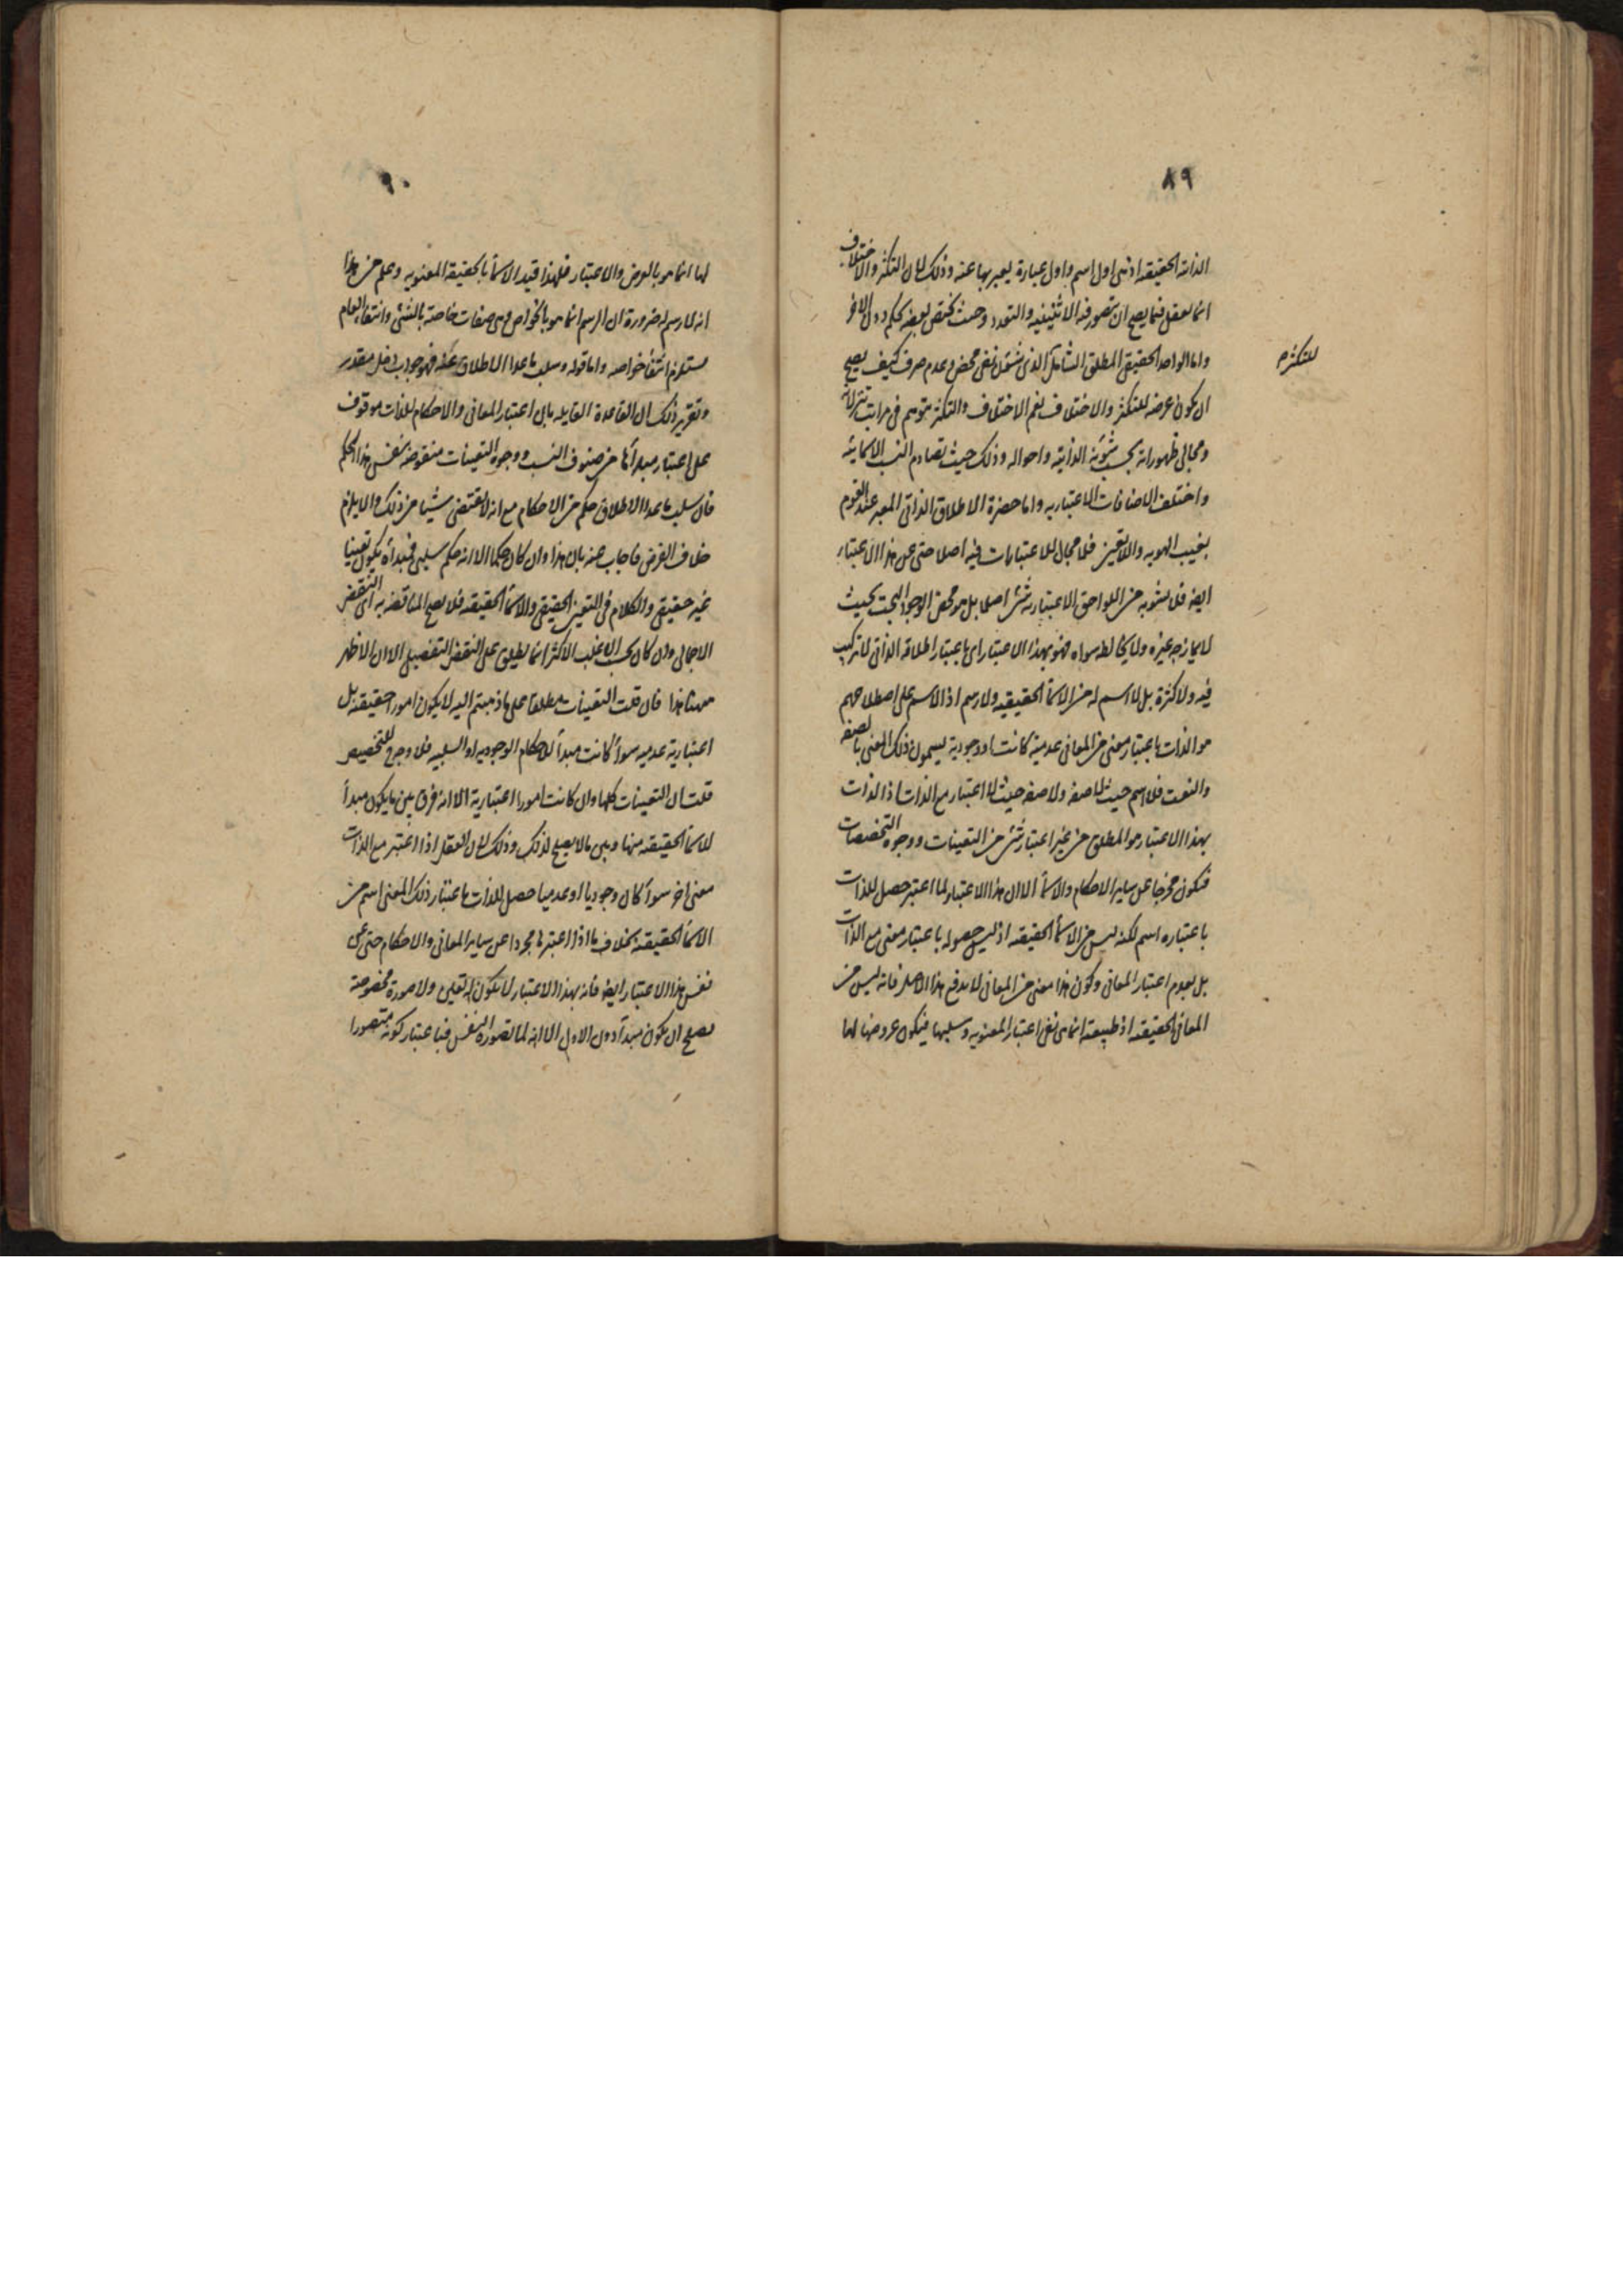 ٨٩
الذاتية الحقيقية اذ هى اول اسم واول عبارة يعبر بها عنه وذلك لان التكثر والاختلاف
انما يعقل فيما يصح ان يتصور فيه الاثنينية والتعدد وحيث يختص بعضه بحكم دون الاخر
واما الواحد الحقيقى المطلق الشامل الذى نفى محض وعدم صرف كيف يصح
ان يكون عرضه للتكثر والاختلاف نعم الاختلاف والتكثر يتوهم فى مراتب تنزلاته
ومجالى ظهوراته بحسب شؤنه الذاتية واحواله وذلك حيث تصادم النسب الاسمائية
واختلف الاضافات الاعتباريه واما حضرة الاطلاق الذاتى المعبر عند القوم
بغيب الهويه واللاتعين فلا مجال للاعتبارات فيه اصلا حتى عن هذا الاعتبار
ايضا فلا يشوبه من اللواحق الاعتباريه شئ اصلا بل هو محض الوجود البحت بحيث
لا يمازجه غيره ولا يخالطه سواه فهو بهذا الاعتبار اى باعتبار اطلاقه الذاتى لا تركيب
فيه ولا كثرة بل لا اسم له من الاسمأ الحقيقيه ولا رسم اذ الاسم على اصطلاحهم
هو الذات باعتبار معنى من المعانى عدمية كانت او وجودية يسمون ذلك المعنى بالصفه
والنعت فلا اسم حيث لا صفه ولا صفه حيث لا اعتبار مع الذات اذ الذات
بهذا الاعتبار هو المطلق من غير اعتبار شئ من التعينات ووجوه التخصصات
فيكون مجردا عن ساير الاحكام والاسمأ الا ان هذا الاعتبار لما اعتبر حصل للذات
باعتباره اسم لكنه ليس من الاسمأ الحقيقيه اذ ليس حصوله باعتبار معنى مع الذات
بل بعدم اعتبار المعانى وكون هذا معنى من المعانى لا يدفع هذا الاصل فانه ليس من
المعانى الحقيقيه اذ طبيعته انما هى نفى اعتبار المعنويه وسلبها فيكون عروضها لها
للتكثر
٩٠
لها انما هو بالعرض والاعتبار فلهذا قيد الاسمأ بالحقيقة المعنويه وعلم من هذا
انه لا رسم له ضرورة ان الرسم انما هو بالخواص وهى صفات خاصة بالشئ وانتفأ العام
مستلزم انتفأ خواصه واما قوله وسلب ما عدا الاطلاق عنه فهو جواب دخل مقدر
وتقرير ذلك ان القاعدة القايله بان اعتبار المعانى والاحكام للذات موقوف
على اعتبار مبدأ ما من صنوف النسب ووجوه التعينات منقوضة بنفس هذا الحكم
فان سلب ما عدا الاطلاق حكم من الاحكام مع انه لا يقتضى شيئا من ذلك والا يلزم
خلاف الفرض فاجاب عنه بان هذا وان كان حكما الا انه حكم سلبى فمبدأه يكون تعينا
غير حقيقى والكلام فى التعين الحقيقى والاسمأ الحقيقيه فلا يصح المناقضه به اى النقض
الاجمالى وان كان بحسب الاغلب الاكثر انما يطلق على النقض التفصيلى الا ان الاظهر
ههنا هذا فان قلت التعينات مطلقا على ما ذهبتم اليه لا يكون امورا حقيقيه بل
اعتبارية عدميه سوأ كانت مبدأ للاحكام الوجوديه او السلبيه فلا وجه للتخصيص
قلت ان التعينات كلها وان كانت امورا اعتبارية الا انه فرق بين ما يكون مبدأ
للاسمأ الحقيقيه منها وبين ما لا يصلح لذلك وذلك لان العقل اذا اعتبر مع الذات
معنى اخر سوأ كان وجوديا او عدميا حصل للذات باعتبار ذلك المعنى اسم من
الاسمأ الحقيقيه بخلاف ما اذا اعتبرها مجردا عن ساير المعانى والاحكام حتى عن
نفس هذا الاعتبار ايضا فانه بهذا الاعتبار لا يكون له تعين ولا صورة مخصوصة
يصلح ان يكون مبدأ دون الاول الا انه لما تصوره النفس فباعتبار كونه متصورا